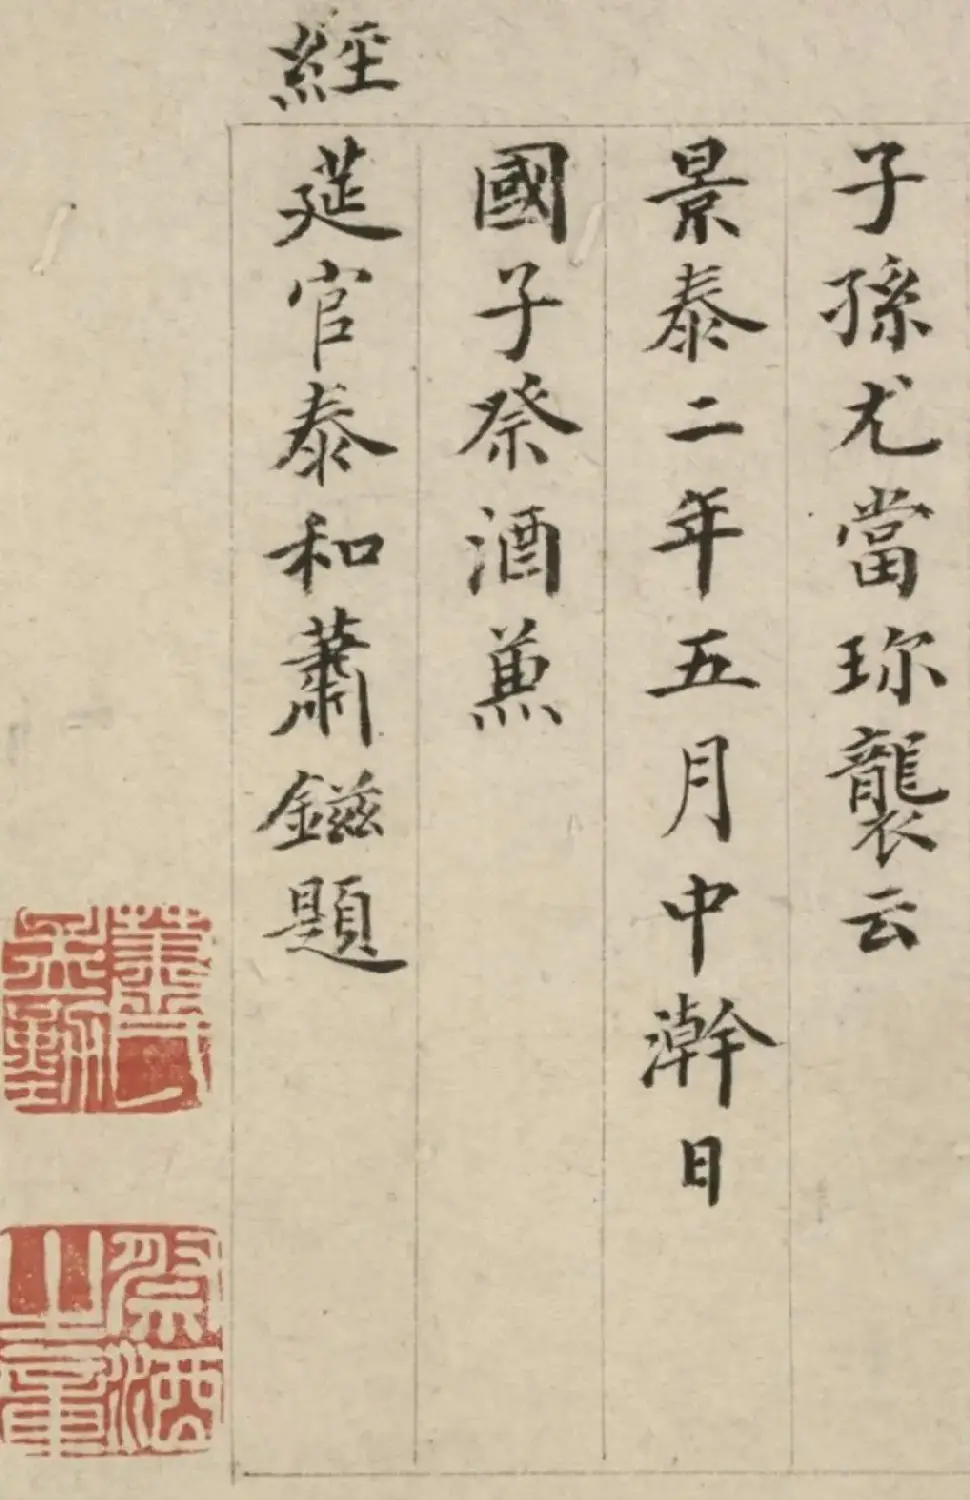 子孫尤當珎襲云
景泰二年五月中澣日
國子祭酒兼
經筵官泰和蕭鎡題
祭酒之章